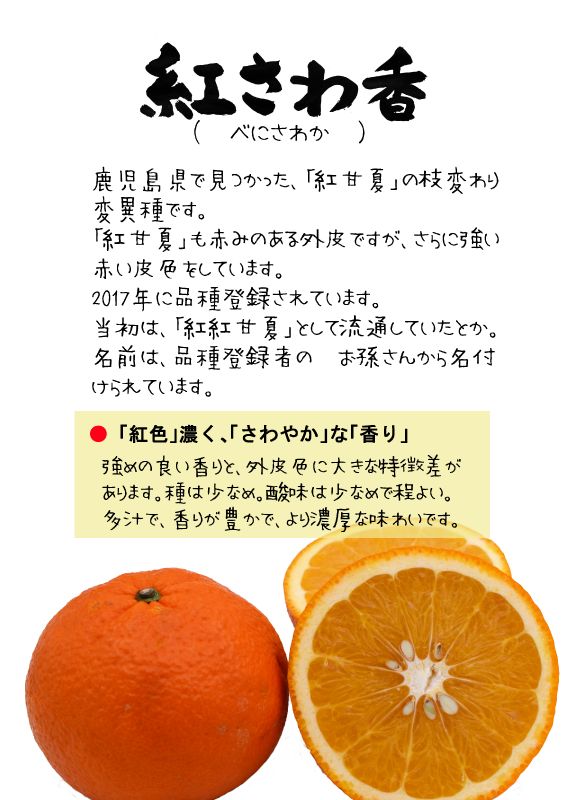 紅さわ香
( べにさわか )
鹿児島県で見つかった、「紅甘夏」の枝変わり
変異種です。
「紅甘夏」も赤みのある外皮ですが、さらに強い
赤い皮色をしています。
2017年に品種登録されています。
当初は、「紅紅甘夏」として流通していたとか。
名前は、品種登録者の　お孫さんから名付
けられています。
● 「紅色」濃く、「さわやか」な「香り」
強めの良い香りと、外皮色に大きな特徴差が
あります。種は少なめ。酸味は少なめで程よい。
多汁で、香りが豊かで、より濃厚な味わいです。